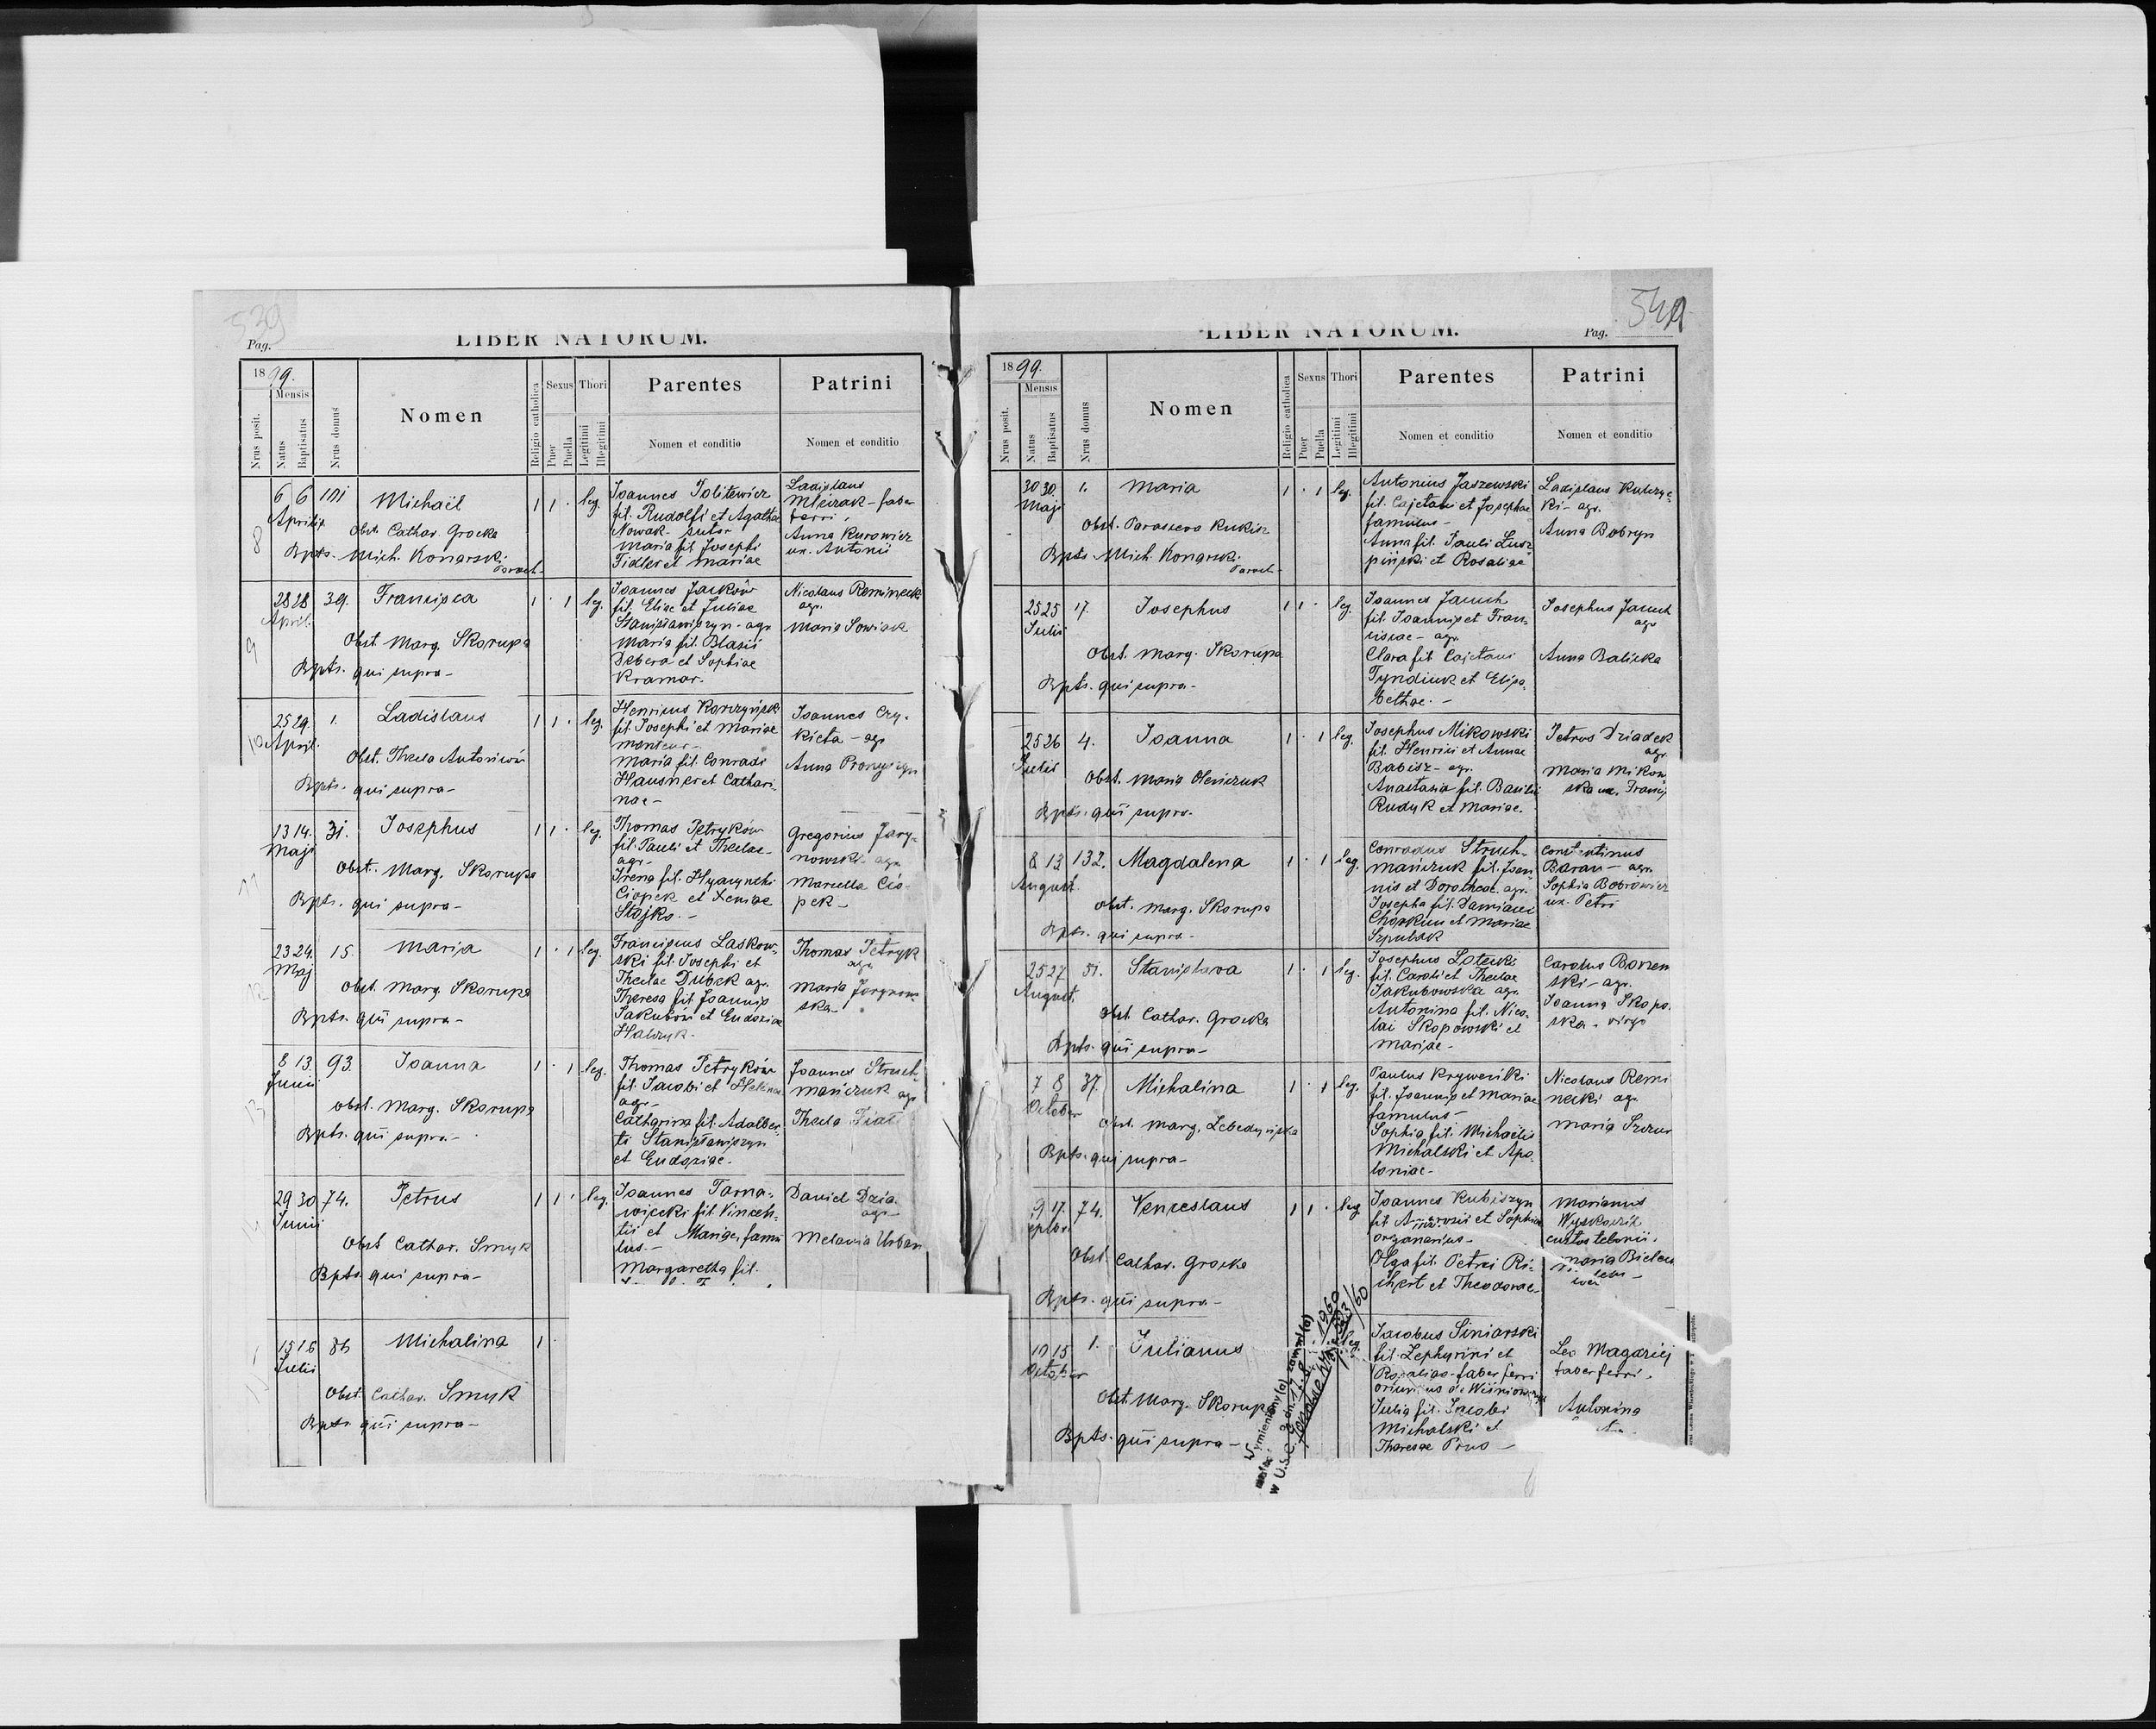 539
LIBER NATORUM.
Pag.
1899.
Mensis
Nrus posit.
Natus
Baptisatus
Nrus domus
Nomen
Religio catholica
Sexus
Puer
Puella
Thori
Legitimi
Illegitimi
Parentes
Nomen et conditio
Patrini
Nomen et conditio
8
6 6 101 Michaël 1 1 · leg.
Aprilis
Obst. Cathar. Grocka
Bpts. Mich. Konarski
Paroch.
Joannes Politewicz
fil. Rudolfi et Agathae
Nowak - sutor
Maria fil. Josephi
Fidler et Mariae
Ladislaus
Mleczak - faber
ferri.
Anna Kurowicz
ux. Antonii
9
28 28 39. Francisca 1 · 1 leg.
April.
Obst. Marg. Skorupa
Bpts. qui supra -
Joannes Jacków
fil. Eliae et Juliae
Stanisławiszyn - agr.
Maria fil. Blasii
Debera et Sophiae
Kramar.
Nicolaus Reminecki
agr.
Maria Sowiak
10
25 29 1. Ladislaus 1 1 · leg.
April.
Obst. Thecla Antoniwów
Bpts. qui supra -
Henricus Korczyński
fil. Josephi et Mariae
Maria fil. Conradi
Hausner et Cathari-
nae -
Joannes Czy-
kieta - agr.
Anna
11
13 14. 31. Josephus 1 1 · leg.
Maji
Obst. Marg. Skorupa
Bpts. qui supra -
Thomas Petryków
fil. Pauli et Theclae -
agr. -
Irena fil. Hyacynthi
Ciopek et Xeniae
Stojko. -
Gregorius Jary-
nowski agr.
Marcella Cio-
pek -
12
23 24. 15. Maria 1 · 1 leg.
Maj
Obst. Marg. Skorupa
Bpts. qui supra -
Franciscus Laskow-
ski fil. Josephi et
Theclae Dubek agr.
Theresa fil. Joannis
Jakubów et Eudoxiae
Halczyk.
Thomas Petryk
agr.
Maria Jarynow
ska -
13
8 13. 93. Joanna 1 · 1 leg.
Junii
Obst. Marg. Skorupa
Bpts. qui supra -
Thomas Petryków
fil. Jacobi et Helenae
agr -
Catharina fil. Adalber-
ti Stanisławiszyn
et Eudoxiae.
Joannes Struch-
mańczuk agr
Thecla
29 30 74. Petrus 1 1 · leg.
Junii
Obst Cathar. Smyk
Bpts. qui supra -
Joannes Tarna-
wiecki fil. Vincen-
tii et Mariae, famu
lus. -
Margaretha fil.
Daniel Dzia-
agr -
Melania Urban
15
15 16 86 Michalina 1
Julii
Obst. Cathar. Smyk
Bpts qui supra -
LIBER NATORUM.
Pag.
1899.
Mensis
Nrus posit.
Natus
Baptisatus
Nrus domus
Nomen
Religio catholica
Sexus
Puer
Puella
Thori
Legitimi
Illegitimi
Parentes
Nomen et conditio
Patrini
Nomen et conditio
30 30. 1. Maria 1 · 1 leg.
Maji
Obst. Parasceva Kukisz
Bpts. Mich. Konarski
Paroch -
Antonius Jaszewski
fil. Cajetani et Josephae
famulus -
Anna fil. Pauli Lusz-
piński et Rosaliae
Ladislaus Kulczyc-
ki - agr.
Anna Bobryn
25 25 17. Josephus 1 1 · leg.
Julii
Obst. Marg. Skorupa
Bpts. qui supra -
Joannes Jauch
fil. Joannis et Fran-
ciscae - agr.
Clara fil. Cajetani
Tyndiuk et Elisa-
bethae. -
Josephus Jauch
agr
Anna Balicka
25 26 4. Joanna 1 · 1 leg.
Julii
Obst. Maria Oleńczuk
Bpts. qui supra -
Josephus Mikowski
fil. Henrici et Annae
Babisz - agr.
Anastasia fil. Basilii
Rudyk et Mariae.
Petrus Dziadek
agr.
Maria Mikow
ska ux. Francis
8 13 132. Magdalena 1 · 1 leg.
August.
Obst. Marg. Skorupa
Bpts. qui supra -
Conradus Struch-
mańczuk fil. Joan-
nis et Dorotheae. agr.
Josepha fil. Damiani
Choркiw et Mariae
Szpulak
Constantinus
Baran - agr.
Sophia Bobrowicz
ux. Petri
25 27 51. Stanislava 1 · 1 leg.
August.
Obst. Cathar. Grocka
Bpts. qui supra -
Josephus Lotecki
fil. Caroli et Theclae
Jakubowska agr.
Antonina fil. Nico-
lai Skopowski et
Mariae -
Carolus Borzem
ski - agr.
Joanna Skopo-
ska - virgo
7 8 37. Michalina 1 · 1 leg.
October
Obst. Marg. Lebedyńska
Bpts. qui supra -
Paulus Krywecilki
fil. Joannis et Mariae
famulus -
Sophia fil. Michaëlis
Michalski et Apo-
loniae -
Nicolaus Remi
necki agr.
Maria
9 17. 74. Venceslaus 1 1 · leg
eptbr.
Obst. Cathar. Grocka
Bpts. qui supra -
Joannes Kubiszyn
fil Ambrosii et Sophiae
organarius -
Olga fil. Petri Ri-
chert et Theodorae -
Marianus
Wyskoczil
custos telonii.
Maria
10 15 1. Julianus
October
Obst. Marg. Skorupa
Bpts. qui supra -
Jacobus Siniarski
fil. Zephyrini et
Rosaliae - faber ferri
oriundus de Wiśniowczyk
Julia fil. Jacobi
Michalski et
Theresae Prus -
Leo Magaziej
faber ferri.
Antonina
Wymieniony(a) zawarł(a)
w U.S.C.
1960
/60